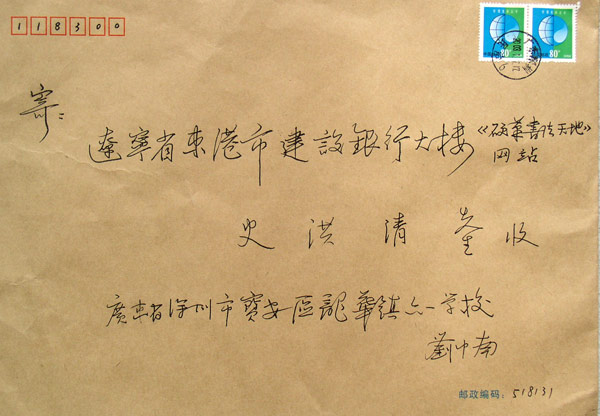 118300
80 80
寄：
遼寧省東港市建設銀行大楼
《硕華書法天地》
网站
史洪清先生收
廣東省深圳市寶安區龍華鎮六一学校
劉中南
邮政编码：518131